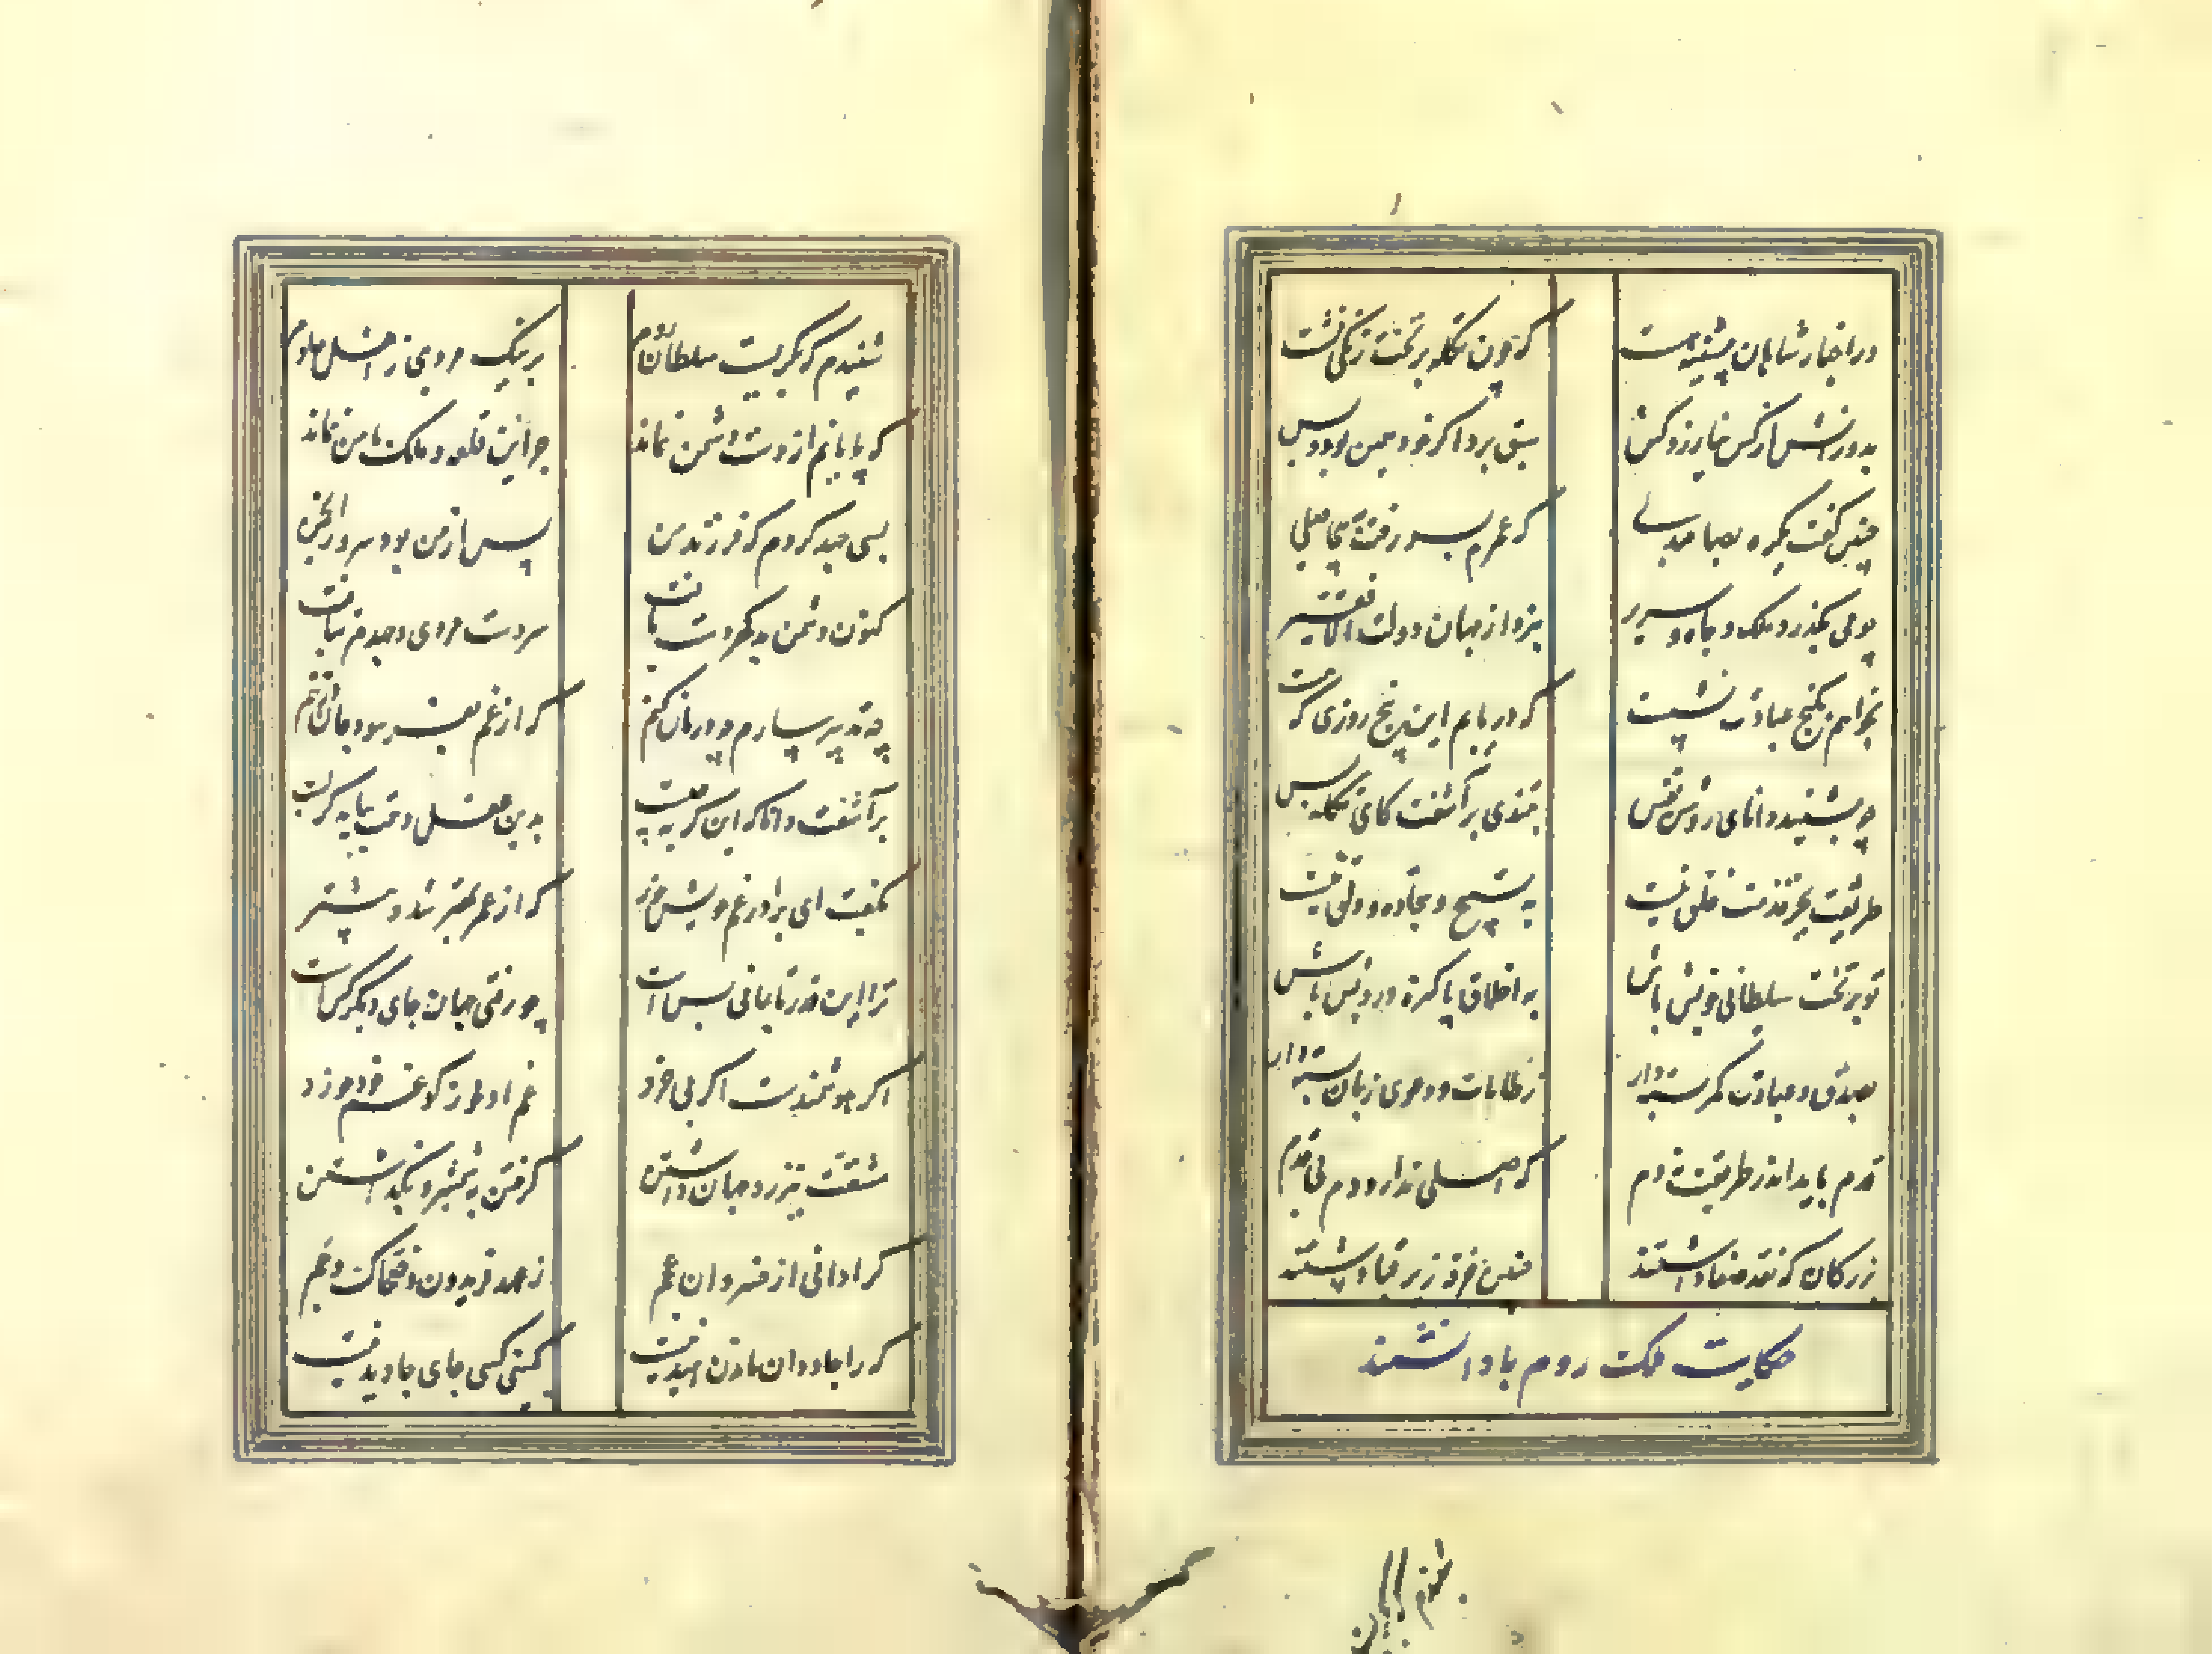 در اخبار شاهان پیشینه هست
که چون تکله بر تخت زنگی نشست
بدورانش از کس نیازرد کس
سبق برد اگر خود همین بود و بس
چنین گفت یکره بصاحبدلی
که عمرم بسر رفت بیحاصلی
چو می بگذرد ملک و جاه و سریر
نبرد از جهان دولت الا فقیر
بخواهم بکنج عبادت نشست
که دریابم این پنج روزی که هست
چو بشنید دانای روشن نفس
بتندی برآشفت کای تکله بس
طریقت بجز خدمت خلق نیست
به تسبیح و سجاده و دلق نیست
تو بر تخت سلطانی خویش باش
به اخلاق پاکیزه درویش باش
بصدق و عبادت کمر بسته دار
ز طامات و دعوی زبان بسته دار
قدم باید اندر طریقت نه دم
که اصلی ندارد دم بی قدم
بزرگان که نقد صفا داشتند
چنین خرقه زیر قبا داشتند
حکایت ملک روم با دانشمند
شنیدم که بگریست سلطان روم
بر نیک مردی ز اهل علوم
که پایانم از دست دشمن نماند
جز این قلعه و ملک با من نماند
بسی جهد کردم که فرزند من
پس از من بود سرور انجمن
کنون دشمن بد گهر دست یافت
سر دست مردی و جهدم بتافت
چه تدبیر سازم چه درمان کنم
که از غم بفرسود جان در تنم
برآشفت دانا که این گریه چیست
بدین عقل و همت بباید گریست
بگفت ای برادر غم خویش خور
که از عمر بهتر شد و بیشتر
ترا این قدر تا بمانی بس است
چو رفتی جهان جای دیگر کس است
اگر هوشمندست اگر بی خرد
غم او مخور کو غم خود خورد
مشقت نیرزد جهان داشتن
گرفتن به شمشیر و بگذاشتن
کرا دانی از خسروان عجم
ز عهد فریدون و ضحاک و جم
کرا جاودان ماندن امید نیست
بگیتی کسی جای جاوید نیست